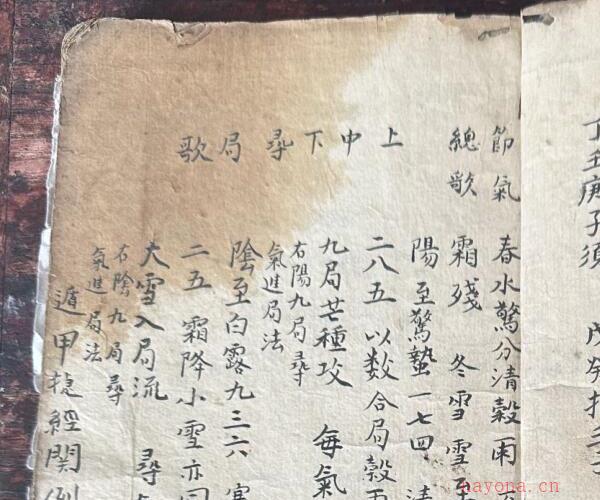 丁壬庚子須 戊癸
節氣 春水驚分清穀雨
總歌 霜殘 冬雪雪至
上中下尋局歌
陽至驚蟄一七四 清
二八五 以数合局穀雨
九局芒種攻 每氣
右陽九局尋
氣進局法
陰至白露九三六 寒
二五 霜降小雪亦同
大雪入局流 尋
右陰九局尋
氣進局法
遁甲捷經開例
nayona.cn